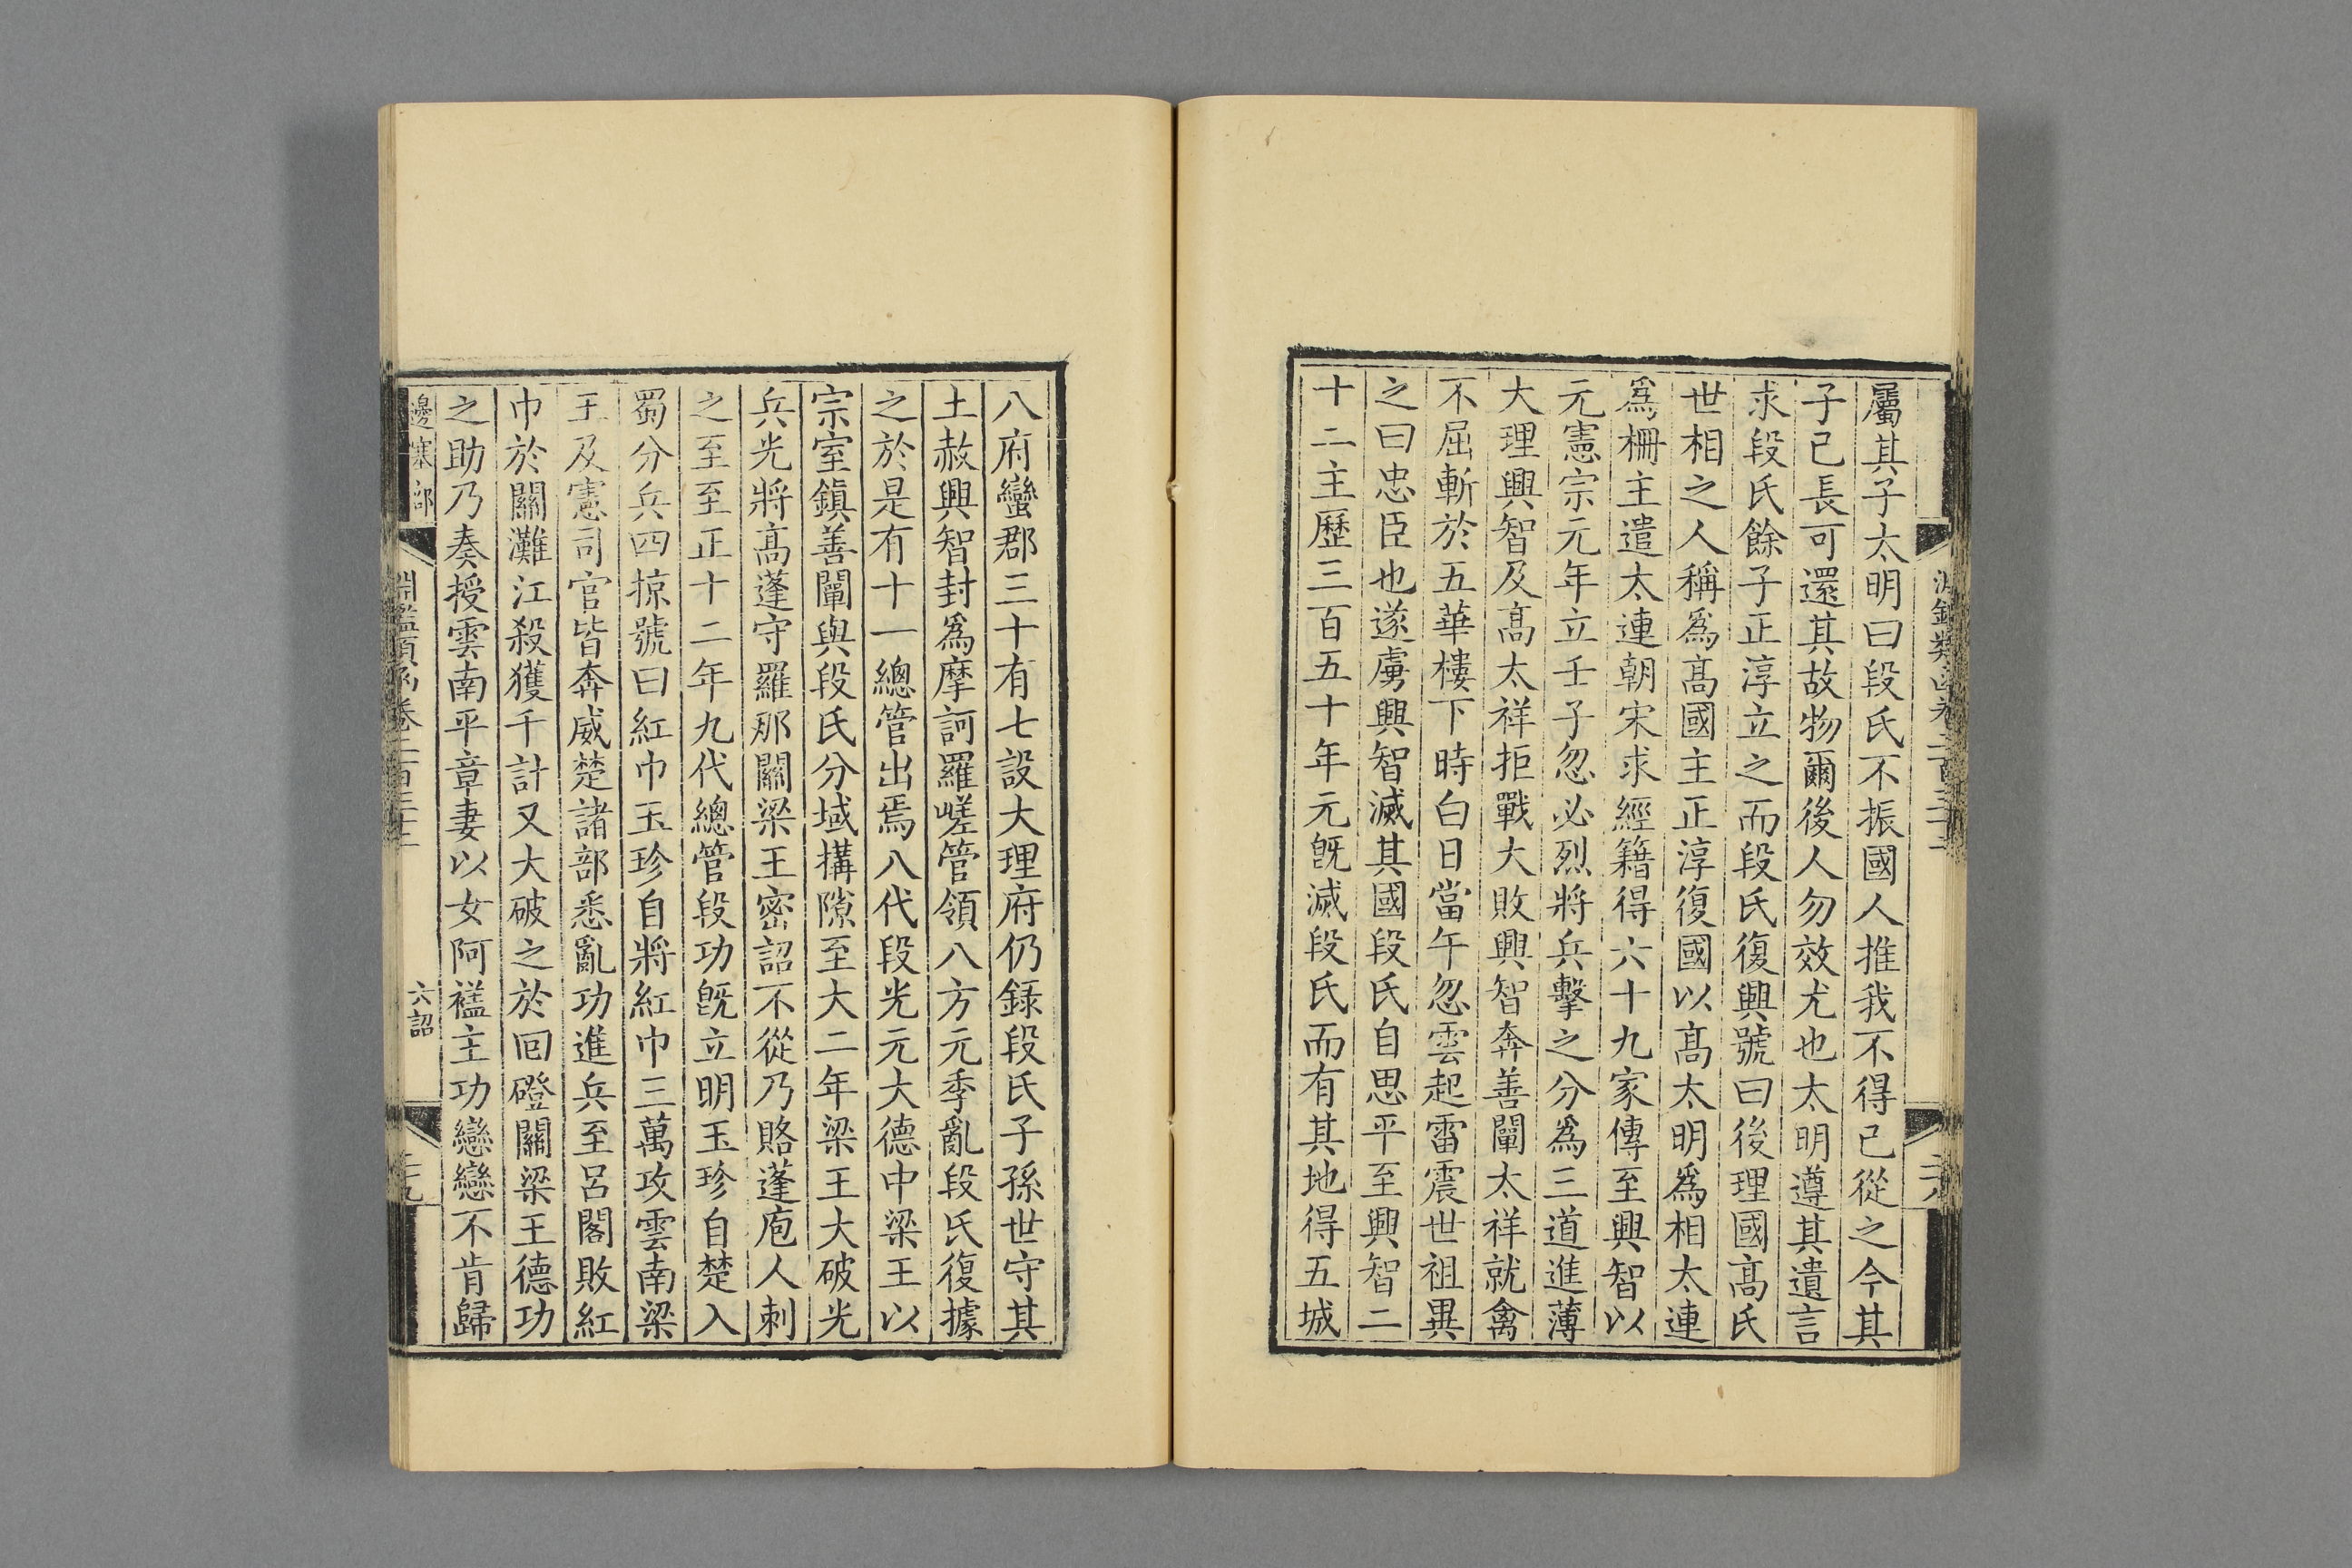 屬其子太明曰段氏不振國人推我不得已從之今其
子已長可還其故物爾後人勿效尤也太明遵其遺言
求段氏餘子正淳立之而段氏復興號曰後理國高氏
世相之人稱爲高國主正淳復國以高太明爲相太連
爲柵主遣太連朝宋求經籍得六十九家傳至興智以
元憲宗元年立壬子忽必烈將兵擊之分爲三道進薄
大理興智及高太祥拒戰大敗興智奔善闡太祥就禽
不屈斬於五華樓下時白日當午忽雲起雷震世祖異
之曰忠臣也遂虜興智滅其國段氏自思平至興智二
十二主歷三百五十年元旣滅段氏而有其地得五城
八府蠻郡三十有七設大理府仍録段氏子孫世守其
土赦興智封爲摩訶羅嵯管領八方元季亂段氏復據
之於是有十一總管出焉八代段光元大德中梁王以
宗室鎮善闡與段氏分域搆隙至大二年梁王大破光
兵光將高蓬守羅那關梁王密詔不從乃賂蓬庖人刺
之至至正十二年九代總管段功旣立明玉珍自楚入
蜀分兵四掠號曰紅巾玉珍自將紅巾三萬攻雲南梁
王及憲司官皆奔威楚諸部悉亂功進兵至呂閣敗紅
巾於關灘江殺獲千計又大破之於回磴關梁王德功
之助乃奏授雲南平章妻以女阿襤主功戀戀不肯歸
邊塞部
六詔